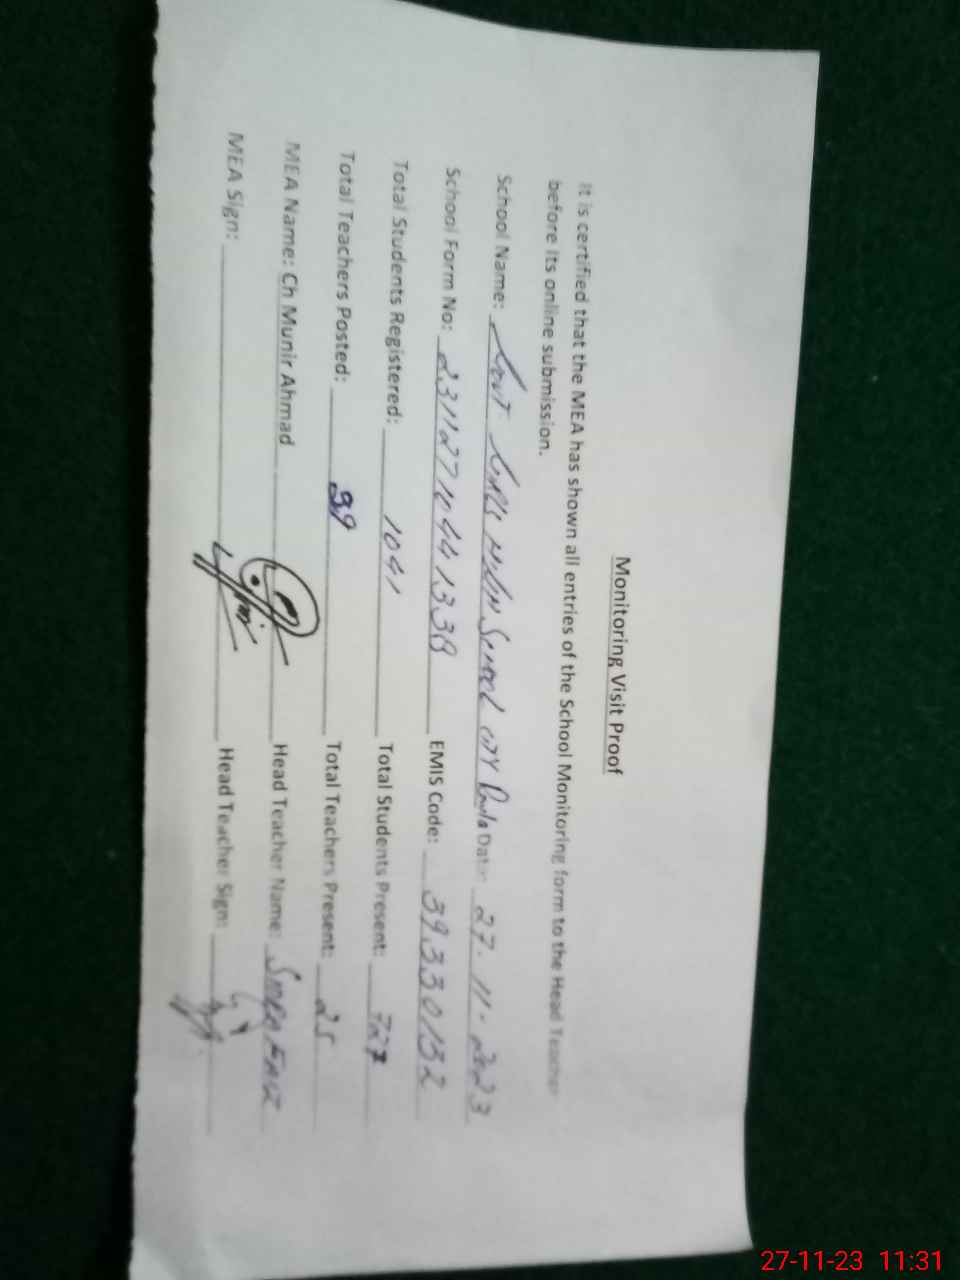 Monitoring Visit Proof
It is certified that the MEA has shown all entries of the School Monitoring form to the Head Teacher
before its online submission.
School Name: Govt Girls High School City Date: 27.11.2023
School Form No: EMIS Code: 39330132
Total Students Registered: 1041 Total Students Present: 727
Total Teachers Posted: 39 Total Teachers Present: 25
MEA Name: Ch Munir Ahmad Head Teacher Name:
MEA Sign: Head Teacher Sign:
27-11-23 11:31